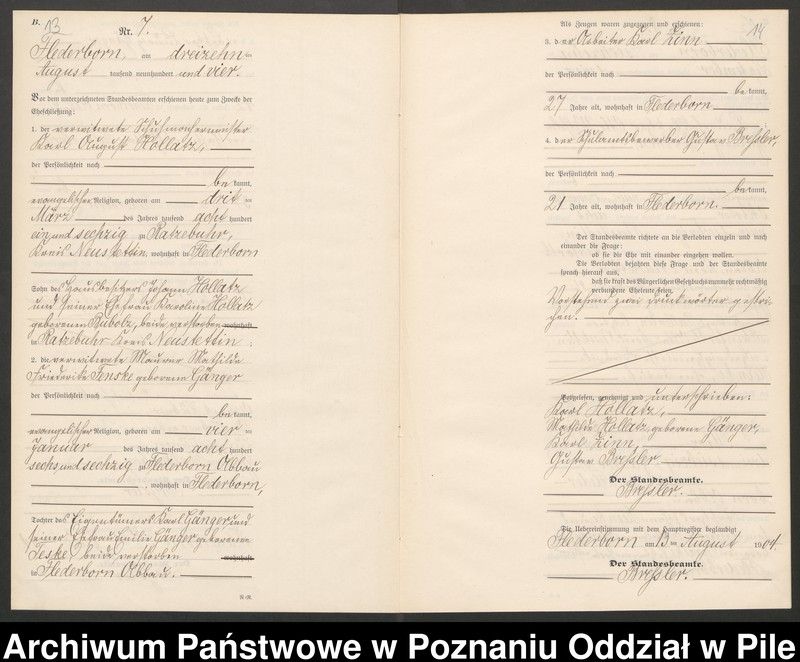 B.
13
Nr. 7.
Flederborn, am dreizehnten
August tausend neunhundert und vier.
Vor dem unterzeichneten Standesbeamten erschienen heute zum Zwecke der
Eheschließung:
1. der verwitwete Schuhmachermeister
Karl August Hollatz,
der Persönlichkeit nach
be kannt,
evangelischer Religion, geboren am dritten
März des Jahres tausend acht hundert
ein und sechzig zu Ratzebuhr,
Kreis Neustettin, wohnhaft in Flederborn
Sohn des Hausbesitzers Johann Hollatz
und seiner Ehefrau Karoline Hollatz
geborenen Bubolz, beide verstorben wohnhaft
in Ratzebuhr Kreis Neustettin;
2. die verwitwete Maurer Mathilde
Friederike Fenske geborene Gänger
der Persönlichkeit nach
be kannt,
evangelischer Religion, geboren am vierten
Januar des Jahres tausend acht hundert
sechs und sechzig zu Flederborn Abbau
, wohnhaft in Flederborn,
Tochter des Eigentümers Karl Gänger und
seiner Ehefrau Emilie Gänger geborenen
Jeske, beide verstorben wohnhaft
in Flederborn Abbau.
R.-R.
14
Als Zeugen waren zugezogen und erschienen:
3. der Arbeiter Karl Zinn
der Persönlichkeit nach
be kannt,
27 Jahre alt, wohnhaft in Flederborn
4. der Schulamtsbewerber Gustav Breßler,
der Persönlichkeit nach
be kannt,
21 Jahre alt, wohnhaft in Flederborn.
Der Standesbeamte richtete an die Verlobten einzeln und nach
einander die Frage:
ob sie die Ehe mit einander eingehen wollen.
Die Verlobten bejahten diese Frage und der Standesbeamte
sprach hierauf aus,
daß sie kraft des Bürgerlichen Gesetzbuchs nunmehr rechtmäßig
verbundene Eheleute seien.
Vorstehend zwei Druckwörter gestri-
chen.
Vorgelesen, genehmigt und unterschrieben:
Karl Hollatz,
Mathilde Hollatz geborene Gänger,
Karl Zinn,
Gustav Breßler
Der Standesbeamte.
Breßler.
Die Uebereinstimmung mit dem Hauptregister beglaubigt
Flederborn am 13 ten August 1904.
Der Standesbeamte.
Breßler.
Archiwum Państwowe w Poznaniu Oddział w Pile